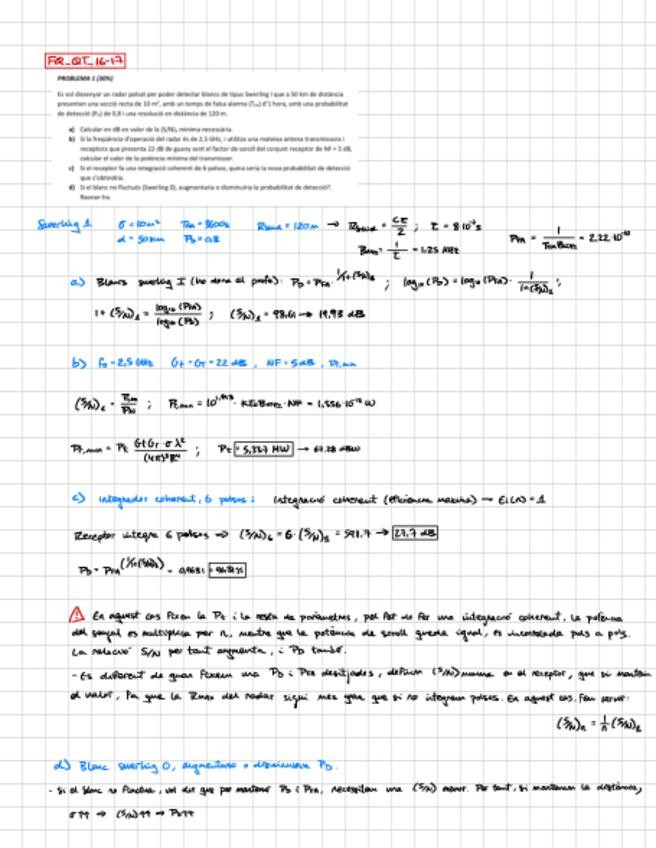 FQ_QT_16-17
PROBLEMA 1 (30%)
Es vol dissenyar un radar polsat per poder detectar blancs de tipus Swerling I que a 50 km de distància
presenten una secció recta de 10 m², amb un temps de falsa alarma (Tfa) d'1 hora, amb una probabilitat
de detecció (PD) de 0,8 i una resolució en distància de 120 m.
a) Calcular en dB en valor de la (S/N)1 mínima necessària.
b) Si la freqüència d'operació del radar és de 2,5 GHz, i utilitza una mateixa antena transmissora i
receptora que presenta 22 dB de guany sent el factor de soroll del conjunt receptor de NF = 5 dB,
calcular el valor de la potència mínima del transmissor.
c) Si el receptor fa una integració coherent de 6 polsos, quina seria la nova probabilitat de detecció
que s'obtindria.
d) Si el blanc no fluctués (Swerling 0), augmentaria o disminuiria la probabilitat de detecció?.
Raonar-ho.
Swerling 1 σ=10m² TFA=3600s =120m → = cτ/2 ; τ = 8·10⁻⁷s PFA = 1/ = 2,22·10⁻¹⁰
d=50km PD=0,8 = 1/τ = 1,25 MHz
a) Blancs swerling I (ho dona el profe): PD = PFA^(1/1+(S/N)1) ; log10(PD) = log10(PFA) · 1/(1+(S/N)1) ;
1+(S/N)1 = log10(PFA)/log10(PD) ; (S/N)1 = 98,61 → 19,93 dB
b) f0=2,5GHz Gt=Gr=22dB, NF=5dB, Pt,min
(S/N)1 = ; Pr,min = · NF = W
Pr,min = Pt GtGr·σλ²/(4π)³R⁴ ; Pt = 5,327 MW → 67,28 dBW
c) Integrador coherent, 6 polsos: Integració coherent (eficiència màxima) → Ei(n)=1
Receptor integra 6 polsos ⇒ (S/N)6 = 6·(S/N)1 = 591,7 → 27,7 dB
PD = PFA^(1/1+(S/N)6) = 0,9631 =
En aquest cas fixem la Pt i la resta de paràmetres, pel fet de fer una integració coherent, la potència
del senyal es multiplica per n, mentre que la potència de soroll queda igual, és incorrelada pols a pols.
La relació S/N per tant augmenta, i PD també.
- És diferent de quan fixem una PD i PFA desitjades, definim (S/N)mínima en el receptor, que si mantenim
el valor, fa que la Rmax del radar sigui més gran que si no integrem polsos. En aquest cas, fem servir:
(S/N)n = 1/n (S/N)1
d) Blanc swerling 0, augmentaria o disminuiria PD.
- Si el blanc no fluctua, vol dir que per mantenir PD i PFA, necessitem una (S/N) menor. Per tant, si mantenim la distància,
σ↑↑ ⇒ (S/N)↑↑ → PD↑↑